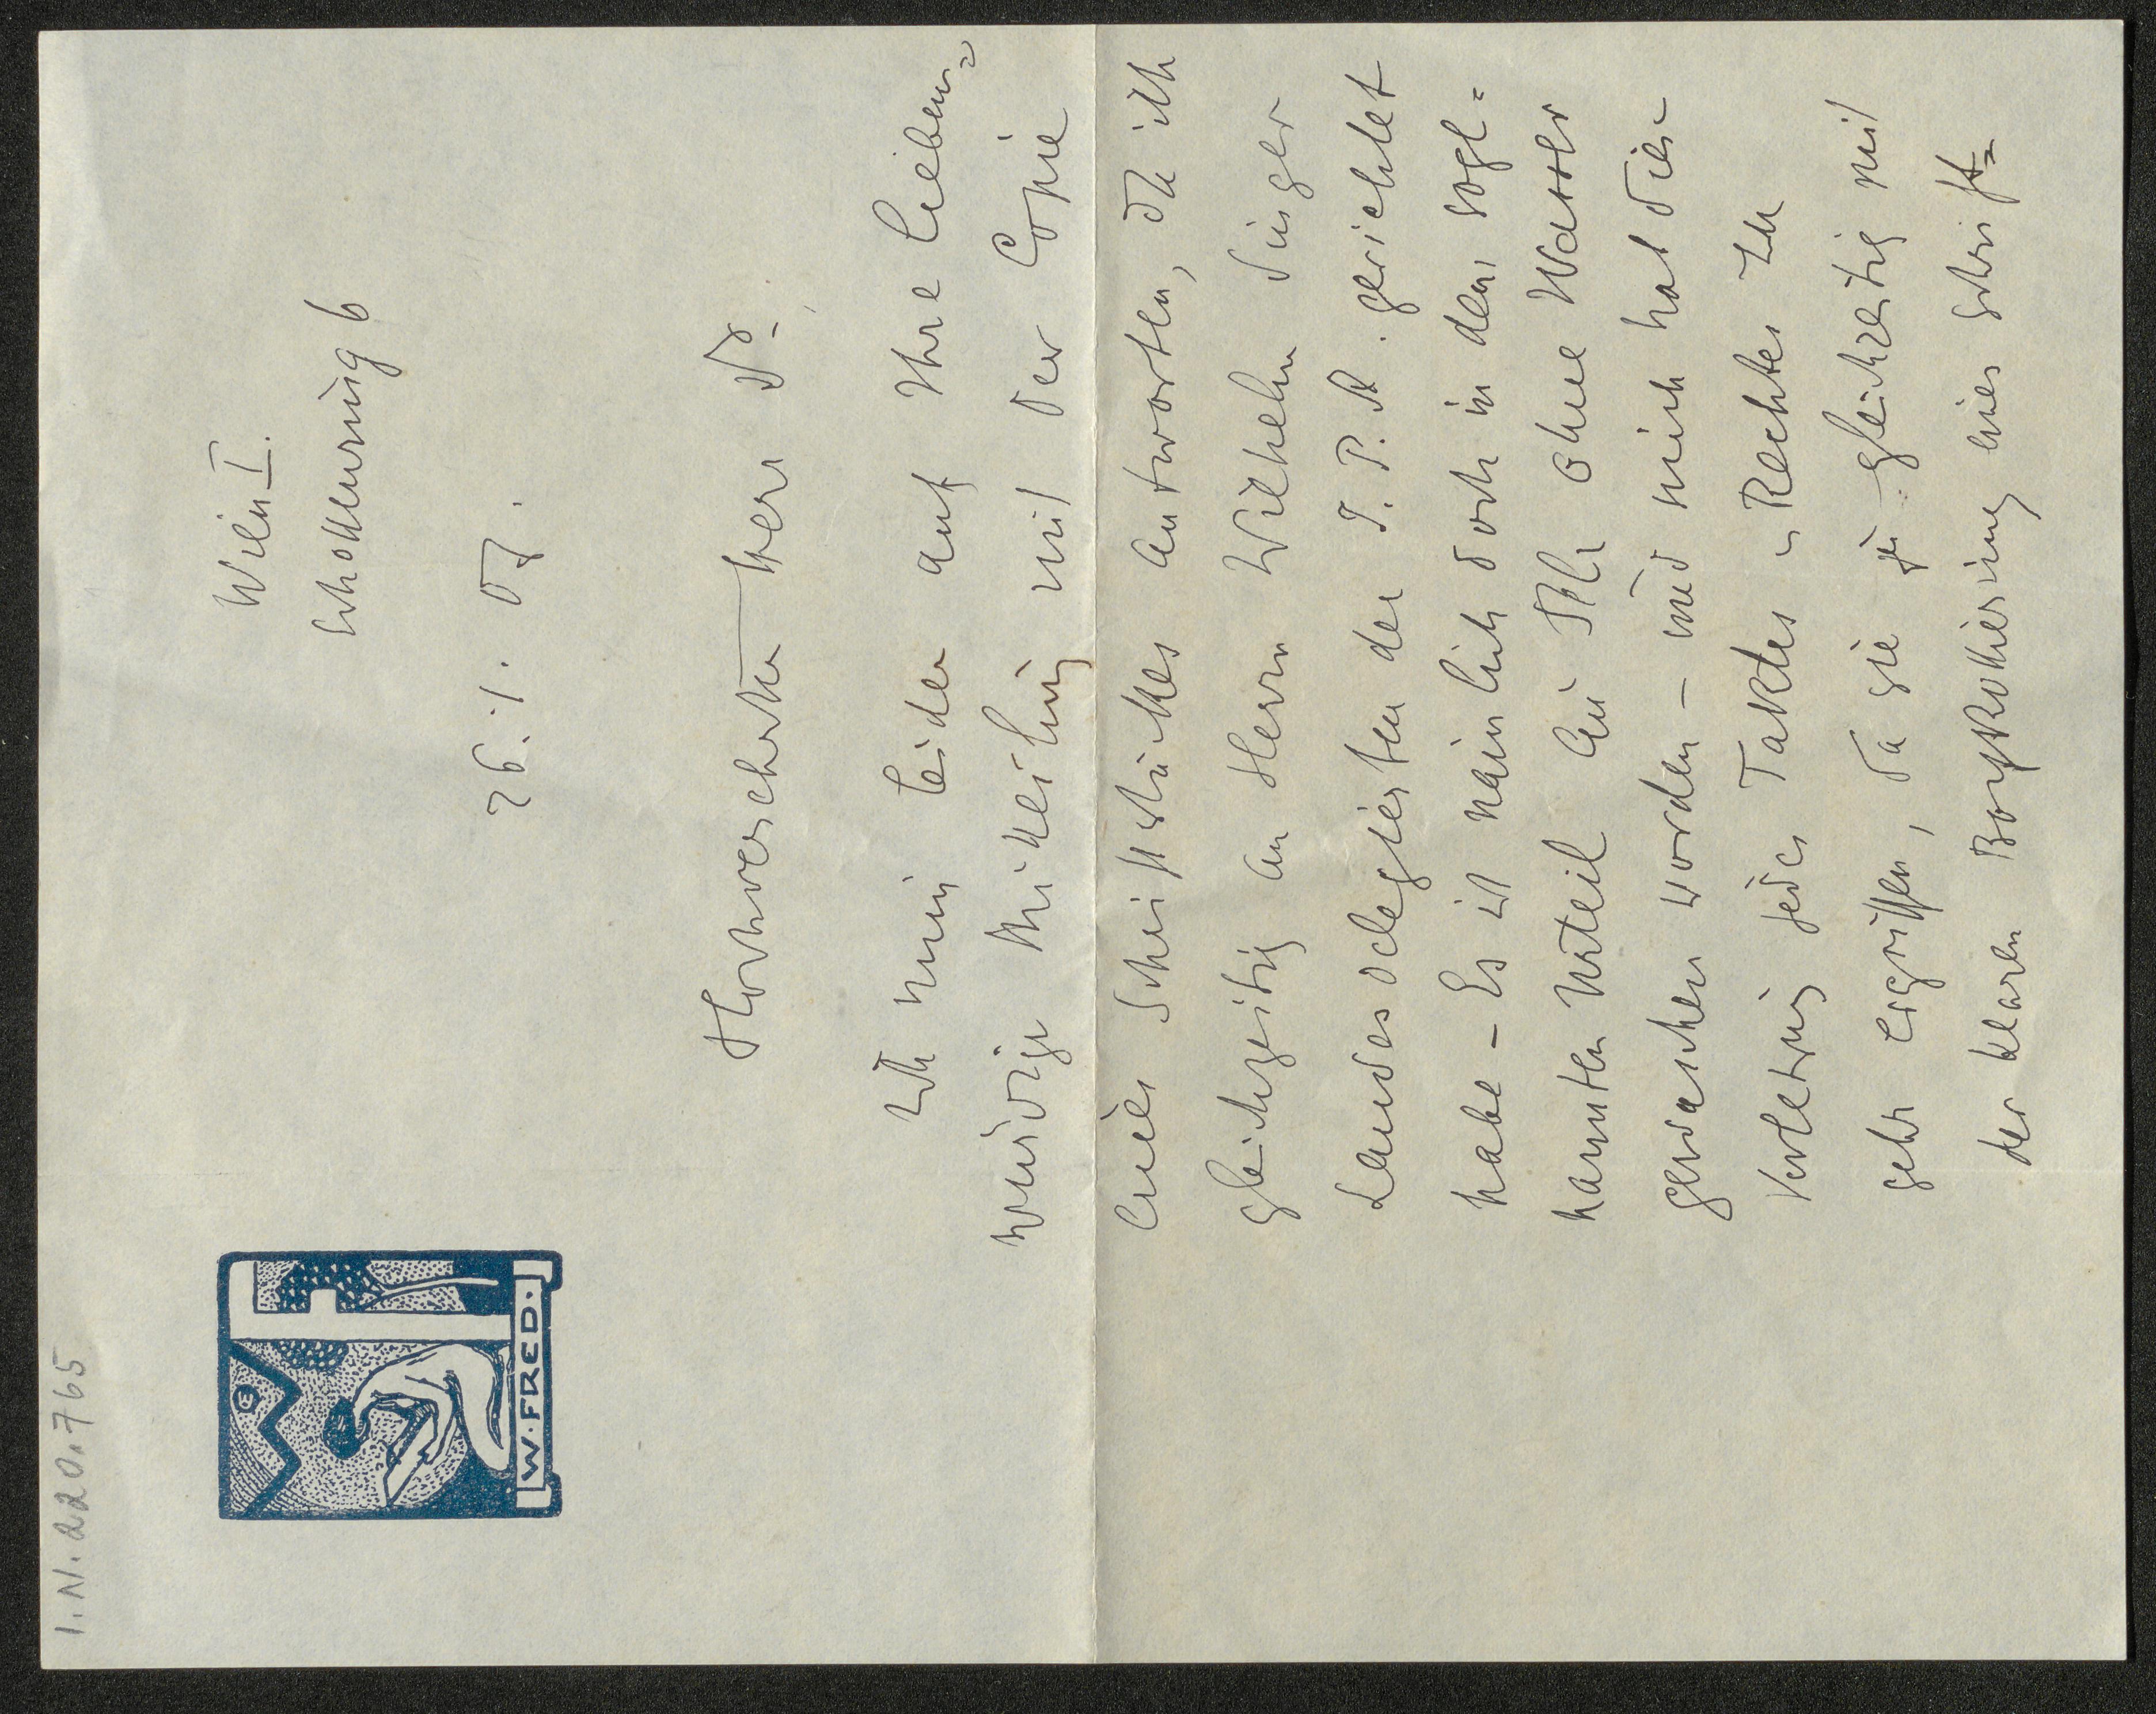 I.N. 220.765
W. FRED.
Wien I.
Schottenring 6
26. 1. 07.
Hochverehrter Herr Dr.
Ich muss leider auf Ihre liebens=
würdige Mitteilung mit der Copie
eines Schriftstückes antworten, das ich
gleichzeitig an Herrn Wilhelm Singer
Landesdelegierten der I. P. A. gerichtet
habe – Es ist nämlich doch in dem sogl=
nannten Urteil ein Pelz ohne Wasser
gewaschen worden – und mich hat diese
Verletzung jedes Taktes u Rechtes zu
sehr ergriffen, da sie ja gleichzeitig mit
der klaren Boykottierung eines Schrift=